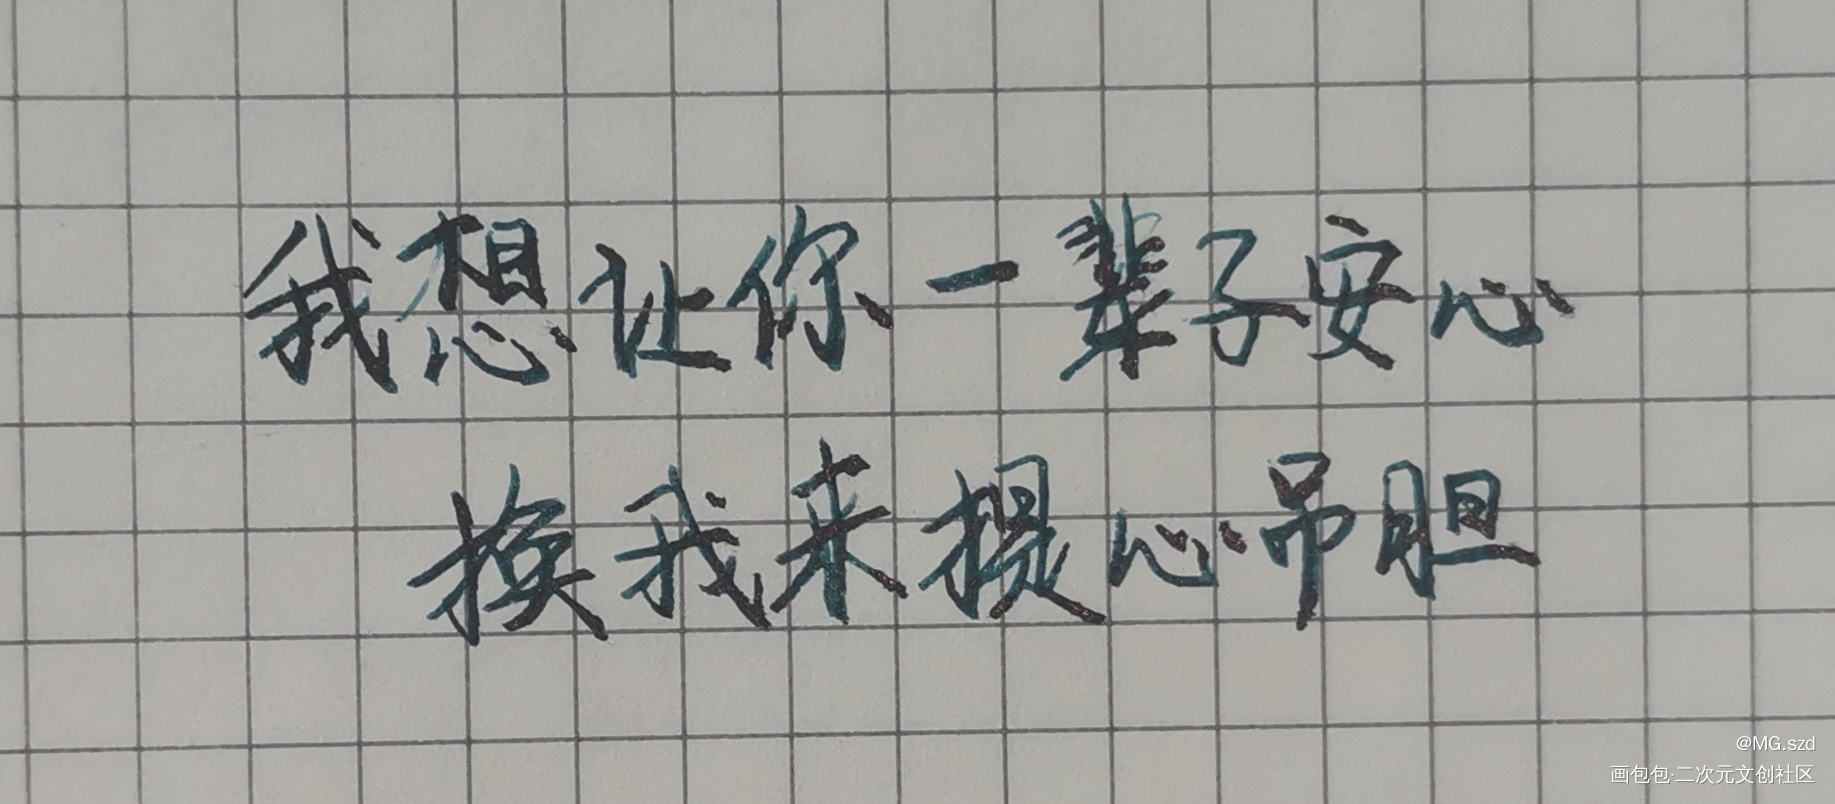 我想让你一辈子安心
换我来提心吊胆
@MG.szd
画包包·二次元文创社区